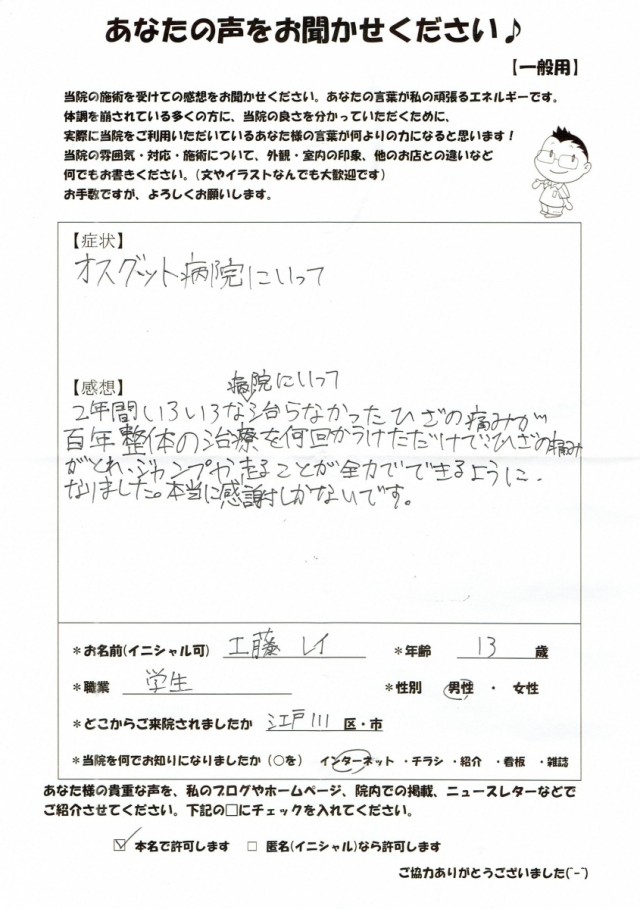 あなたの声をお聞かせください♪
【一般用】
当院の施術を受けての感想をお聞かせください。あなたの言葉が私の頑張るエネルギーです。
体調を崩されている多くの方に、当院の良さを分かっていただくために、
実際に当院をご利用いただいているあなた様の言葉が何よりの力になると思います！
当院の雰囲気・対応・施術について、外観・室内の印象、他のお店との違いなど
何でもお書きください。(文やイラストなんでも大歓迎です)
お手数ですが、よろしくお願いします。
【症状】
オスグット病院にいって
【感想】
病院にいって
2年間いろいろな治らなかったひざの痛みが
百年整体の治療を何回かうけただけで、ひざの痛み
がとれ、ジャンプや走ることが全力でできるように
なりました。本当に感謝しかないです。
*お名前(イニシャル可) 工藤 レイ *年齢 13 歳
*職業 学生 *性別 男性 ・ 女性
*どこからご来院されましたか 江戸川 区・市
*当院を何でお知りになりましたか (○を) インターネット ・チラシ ・紹介 ・看板 ・雑誌
あなた様の貴重な声を、私のブログやホームページ、院内での掲載、ニュースレターなどで
ご紹介させてください。下記の□にチェックを入れてください。
☑ 本名で許可します □ 匿名(イニシャル)なら許可します
ご協力ありがとうございました(^-^)